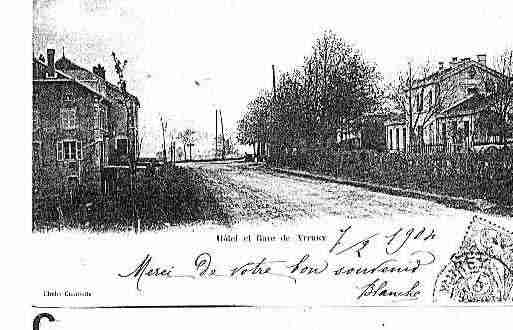 Hôtel et Gare de
7/2 1904
Merci de votre bon souvenir
Blanche
Cliché